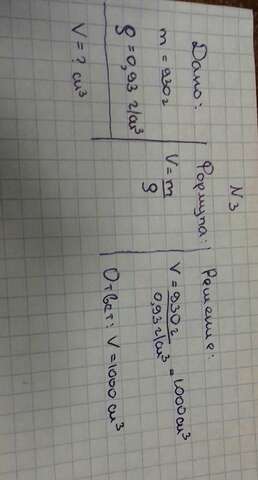 N3
Дано:
m = 930г
ρ = 0,93 г/см³
V = ? см³
Формула:
V = m/ρ
Решение:
V = 930г / 0,93 г/см³ = 1000 см³
Ответ: V = 1000 см³